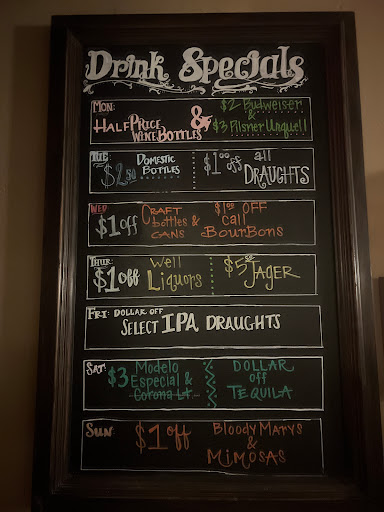 Drink Specials
MON:
HALF PRICE WINE BOTTLES
&
$2 Budweiser
$3 Pilsner Urquell
TUE
$2.50
DOMESTIC BOTTLES
$1.00 off
all DRAUGHTS
WED
$1 off
CRAFT bottles & CANS
$1.00 OFF
Call BourBons
THUR:
$1 off
Well Liquors
$5 JAGER
FRI: DOLLAR OFF
SELECT IPA DRAUGHTS
SAT:
$3
Modelo Especial &
Corona Lt.
DOLLAR off TEQUILA
SUN:
$1 off
Bloody Marys
&
MiMOSAS